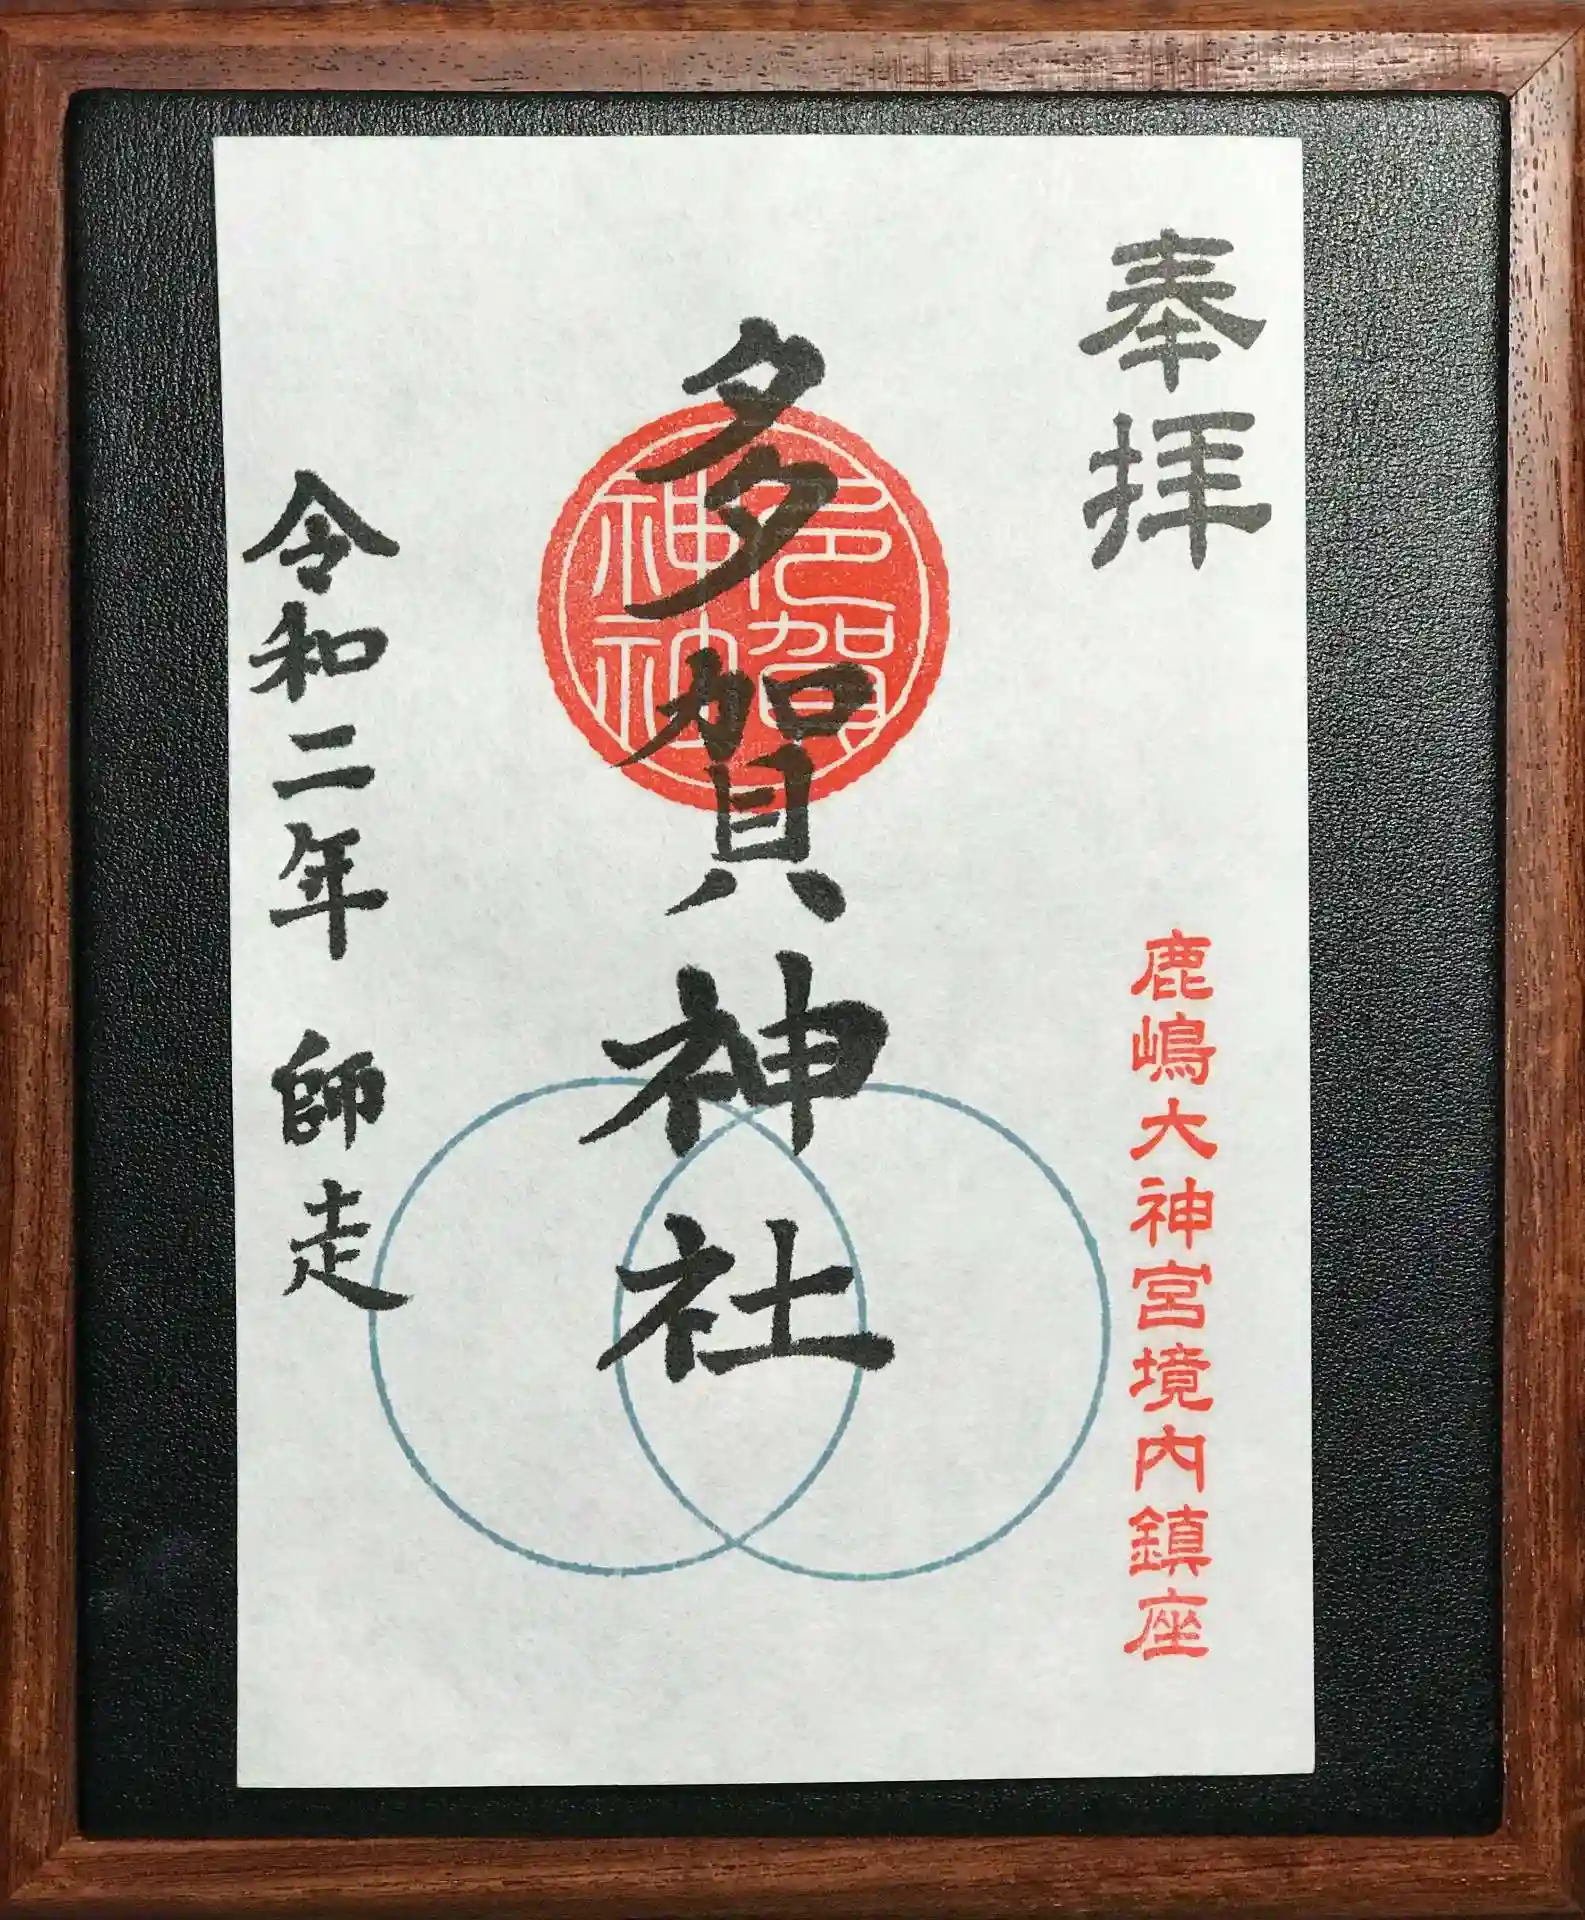 奉拝
鹿嶋大神宮境内鎮座
多賀神社
多賀
神社
令和二年 師走